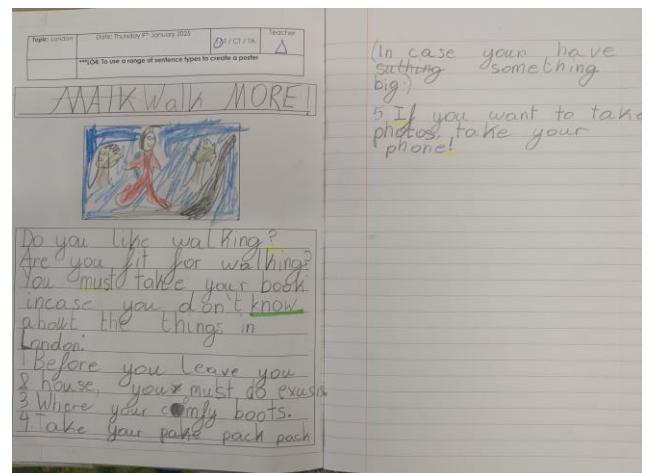 Topic: London
Date: Thursday 9th January 2025
I / CT / TA
Teacher
***LO4: To use a range of sentence types to create a poster
WALK Walk MORE!
Do you like walking?
Are you fit for walking?
You must take your book
incase you don't know
about the things in
London.
1 Before you leave you
2 house, you must do exusis
3. Where your comfy boots.
4. Take your pake pack pack
(In case your have
suthing something
big:)
5. If you want to take
photos, take your
phone!